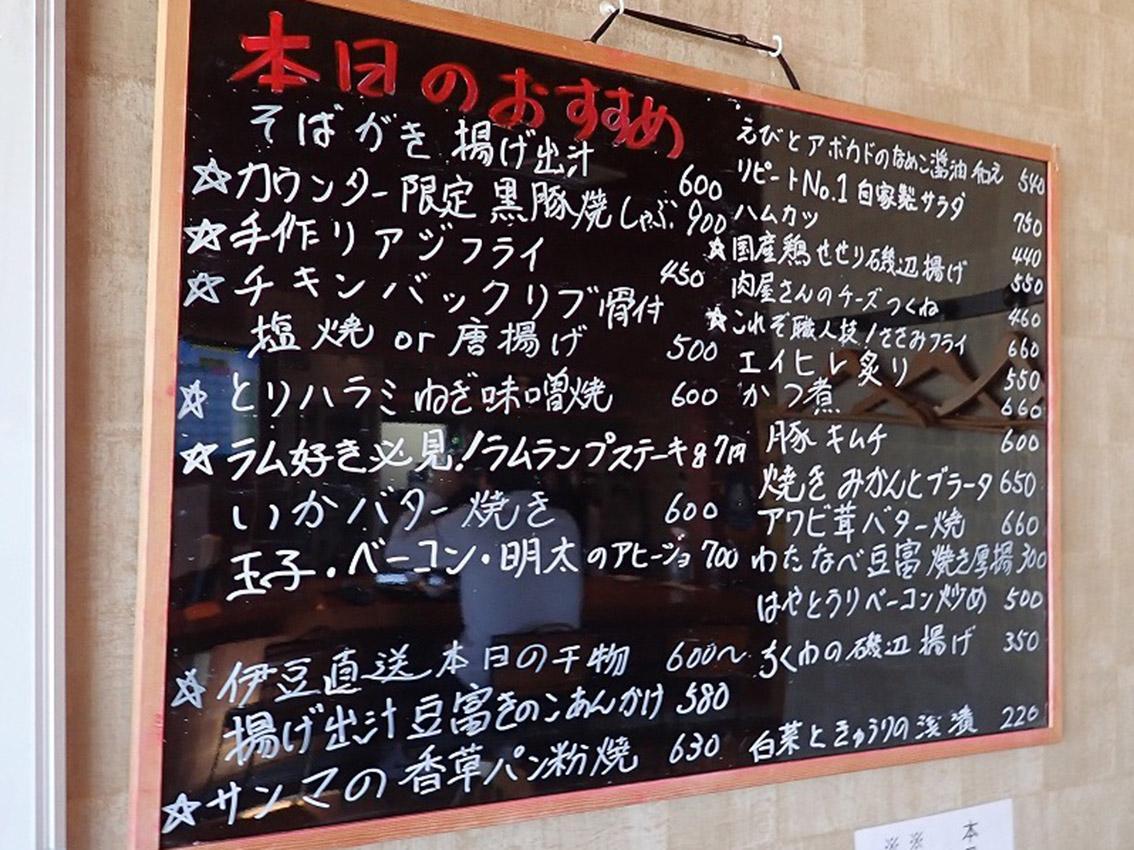 本日のおすすめ
そばがき 揚げ出汁 600
☆カウンター限定 黒豚焼しゃぶ 900
☆手作りアジフライ 450
☆チキンバックリブ骨付
塩焼 or 唐揚げ 500
☆とりハラミねぎ味噌焼 600
☆ラム好き必見!ラムランプステーキ g7円
いかバター焼き 600
玉子・ベーコン・明太のアヒージョ 700
☆伊豆直送本日の干物 600〜
揚げ出汁豆富きのこあんかけ 580
☆サンマの香草パン粉焼 630
えびとアボカドのなめこ醤油和え 540
リピートNo.1 自家製サラダ 750
ハムカツ 440
☆国産鶏せせり磯辺揚げ 550
肉屋さんのチーズつくね 460
☆これぞ職人技!ささみフライ 660
エイヒレ炙り 550
かつ煮 660
豚キムチ 600
焼きみかんとブラータ 650
アワビ茸バター焼 660
わたなべ豆富焼き厚揚 300
はやとうりベーコン炒め 500
ちくわの磯辺揚げ 350
白菜ときゅうりの浅漬 220
本